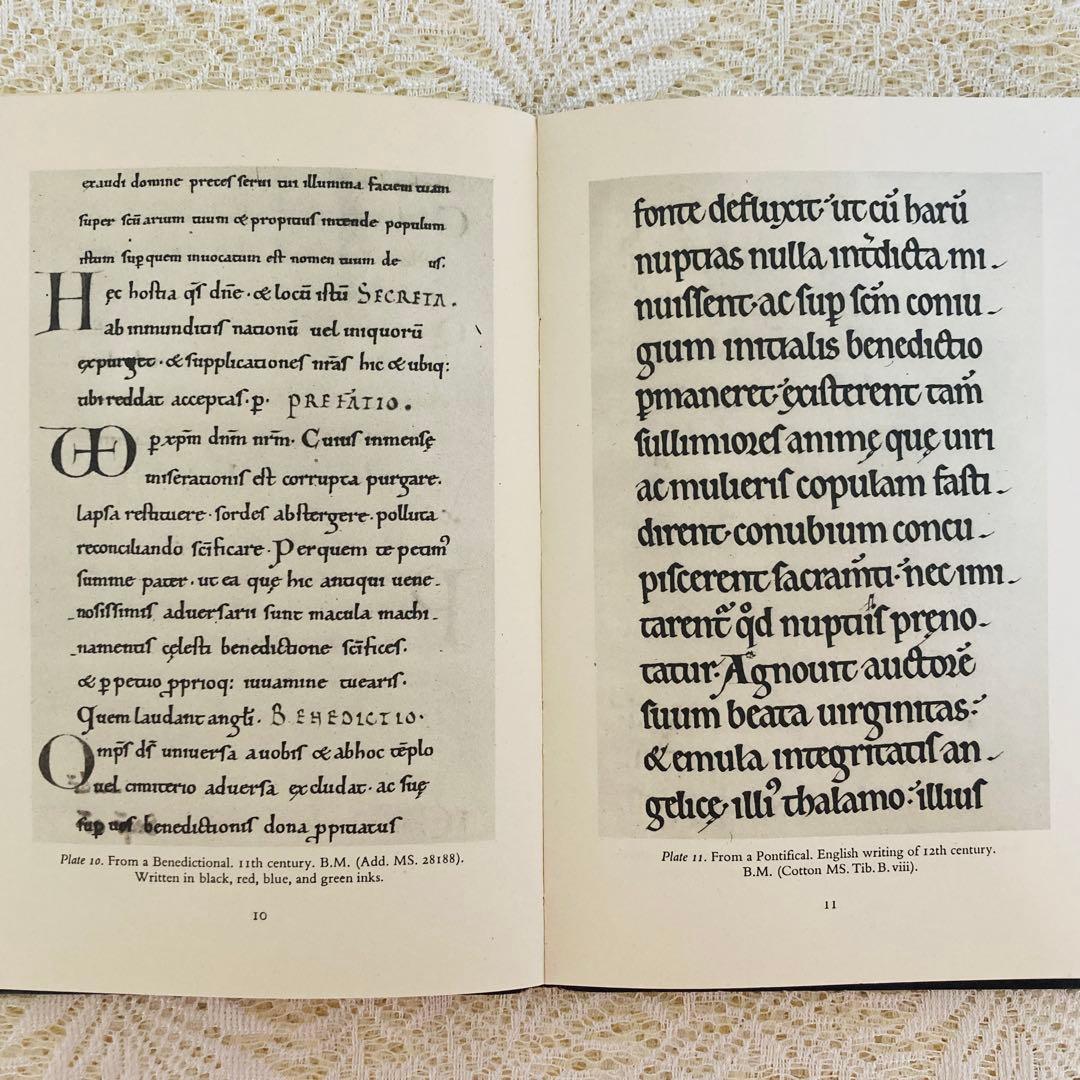 exaudi domine preces serui tui illumina faciem tuam
super scu̅arium tuum & propitius intende populum
istum sup̱ quem inuocatum est nomen tuum de us.
Hęc hostia qs̅ dn̅e · & locu̅ istu̅ SECRETA.
ab inmunditiis nationu̅ uel iniquoru̅
expurget · & supplicationes nr̅as hic & ubiq:
tibi reddat acceptas · p̱. PREFATIO.
UD p̱ xp̅m dn̅m nr̅m. Cuius inmensę
miserationis est corrupta purgare.
lapsa restituere · sordes abstergere · polluta
reconciliando sc̅ificare · Per quem te petim᷒
summe pater · ut ea quę hic antiqui uene-
nosissimis aduersarii sunt macula machi-
namentis cęlesti benedictione sc̅ifices.
& p̱petuo p̱prioq: iuuamine tuearis.
Quem laudant angl̅i. BENEDICTIO.
Omp̅s ds̅ uniuersa a uobis & ab hoc te̅plo
uel cimiterio aduersa excludat · ac suę
sup̱ uos benedictionis dona p̱pitiatus
Plate 10. From a Benedictional. 11th century. B.M. (Add. MS. 28188).
Written in black, red, blue, and green inks.
10
fonte defluxit · ut cu̅ haru̅
nuptias nulla int̅dicta mi-
nuissent · ac sup̱ sc̅m coniu-
gium initialis benedictio
p̱maneret · ęxisterent tam̅
sullimiores animę quę uiri
ac mulieris copulam fasti-
dirent · conubium concu-
piscerent sacram̅ti · nec imi-
tarent᷒ qd̊ nuptiis pręno-
tatur. Agnouit auctore̅
suum beata uirginitas:
& emula integritatis an-
gelicę · illi᷒ thalamo · illius
Plate 11. From a Pontifical. English writing of 12th century.
B.M. (Cotton MS. Tib. B. viii).
11